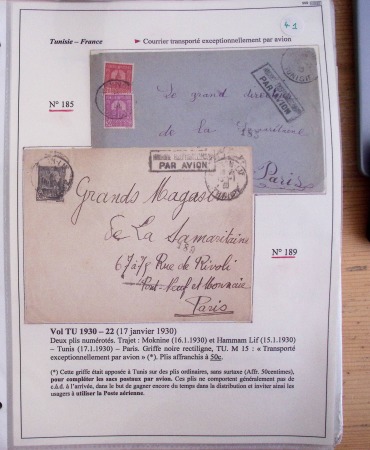 41
Tunisie – France ► Courrier transporté exceptionnellement par avion
N° 185
PAR AVION
Le grand
de la Samaritaine
Paris
PAR AVION
Grands Magas
de La Samaritaine
67 à 78 Rue de Rivoli
Pont-Neuf et Monnaie
Paris
N° 189
Vol TU 1930 – 22 (17 janvier 1930)
Deux plis numérotés. Trajet : Moknine (16.1.1930) et Hammam Lif (15.1.1930)
– Tunis (17.1.1930) – Paris. Griffe noire rectiligne, TU. M 15 : « Transporté
exceptionnellement par avion » (*). Plis affranchis à 50c.
(*) Cette griffe était apposée à Tunis sur des plis ordinaires, sans surtaxe (Aff. 50centimes),
pour compléter les sacs postaux par avion. Ces plis ne comportent généralement pas de
c.à.d. à l'arrivée, dans le but de gagner encore du temps dans la distribution et inviter ainsi les
usagers à utiliser la Poste aérienne.